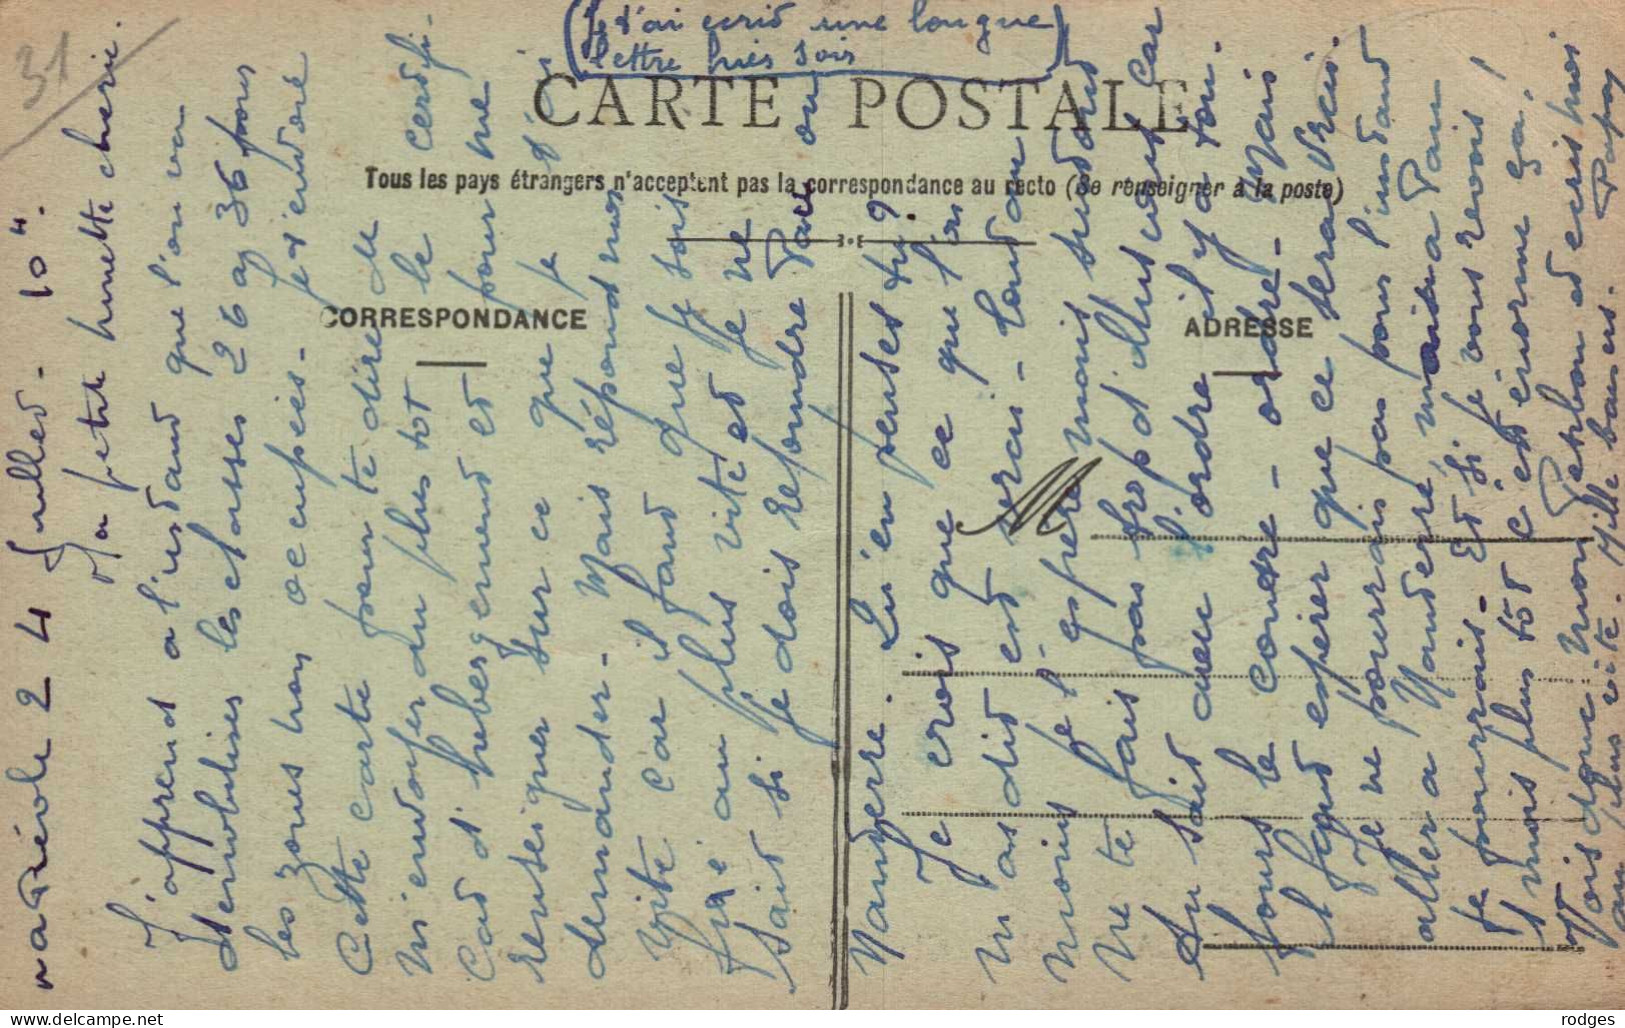 31
(Je t'ai ecrit une longue
lettre hier soir)
CARTE POSTALE
Tous les pays étrangers n'acceptent pas la correspondance au recto (Se renseigner à la poste)
CORRESPONDANCE
ADRESSE
M
24 Juillet - 10H.
Ma petite Ginette cherie.
J'apprend a l'instant que l'on va
demobiliser les classes 26 a 36 pour
les zones non occupées - Je t'envoie
Cette carte pour te dire de
m'envoyer au plus tot le certifi-
cat d'hebergement et pour me
renseigner sur ce que je t'ai
demander - Mais répond moi
vite car il faut que je sois
fixé au plus vite et je ne
sait si je dois repondre Pau ou
Nanterre. Qu'en penses tu ?
Je crois que ce que l'on
m'as dit est vrai - tout au
moins je l'espère mais surtout
ne te fais pas trop d'illusions car
tu sait avec l'ordre il y a tou-
jours le contre - ordre - Mais
il faut esperer que ce sera vrai.
Je ne pourrais pas pour l'instant
aller a Nanterre mais a Pau
je pourrais - Et si je vous revois
1 mois plus tôt c'est énorme ça !
Vois donc mon Petiou et ecris moi
au plus vite. Mille baisers. Papa
rodges